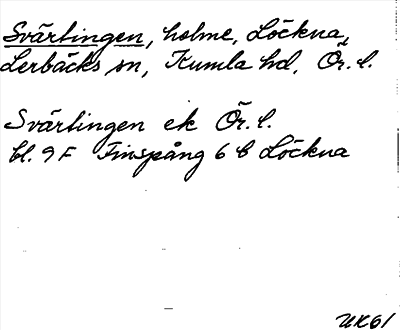 Svärtingen, holme, Löckna,
Lerbäcks sn, Kumla hd, Ör. l.
Svärtingen ek Ör. l.
bl. 9 F Finspång 6 b Löckna
UK61